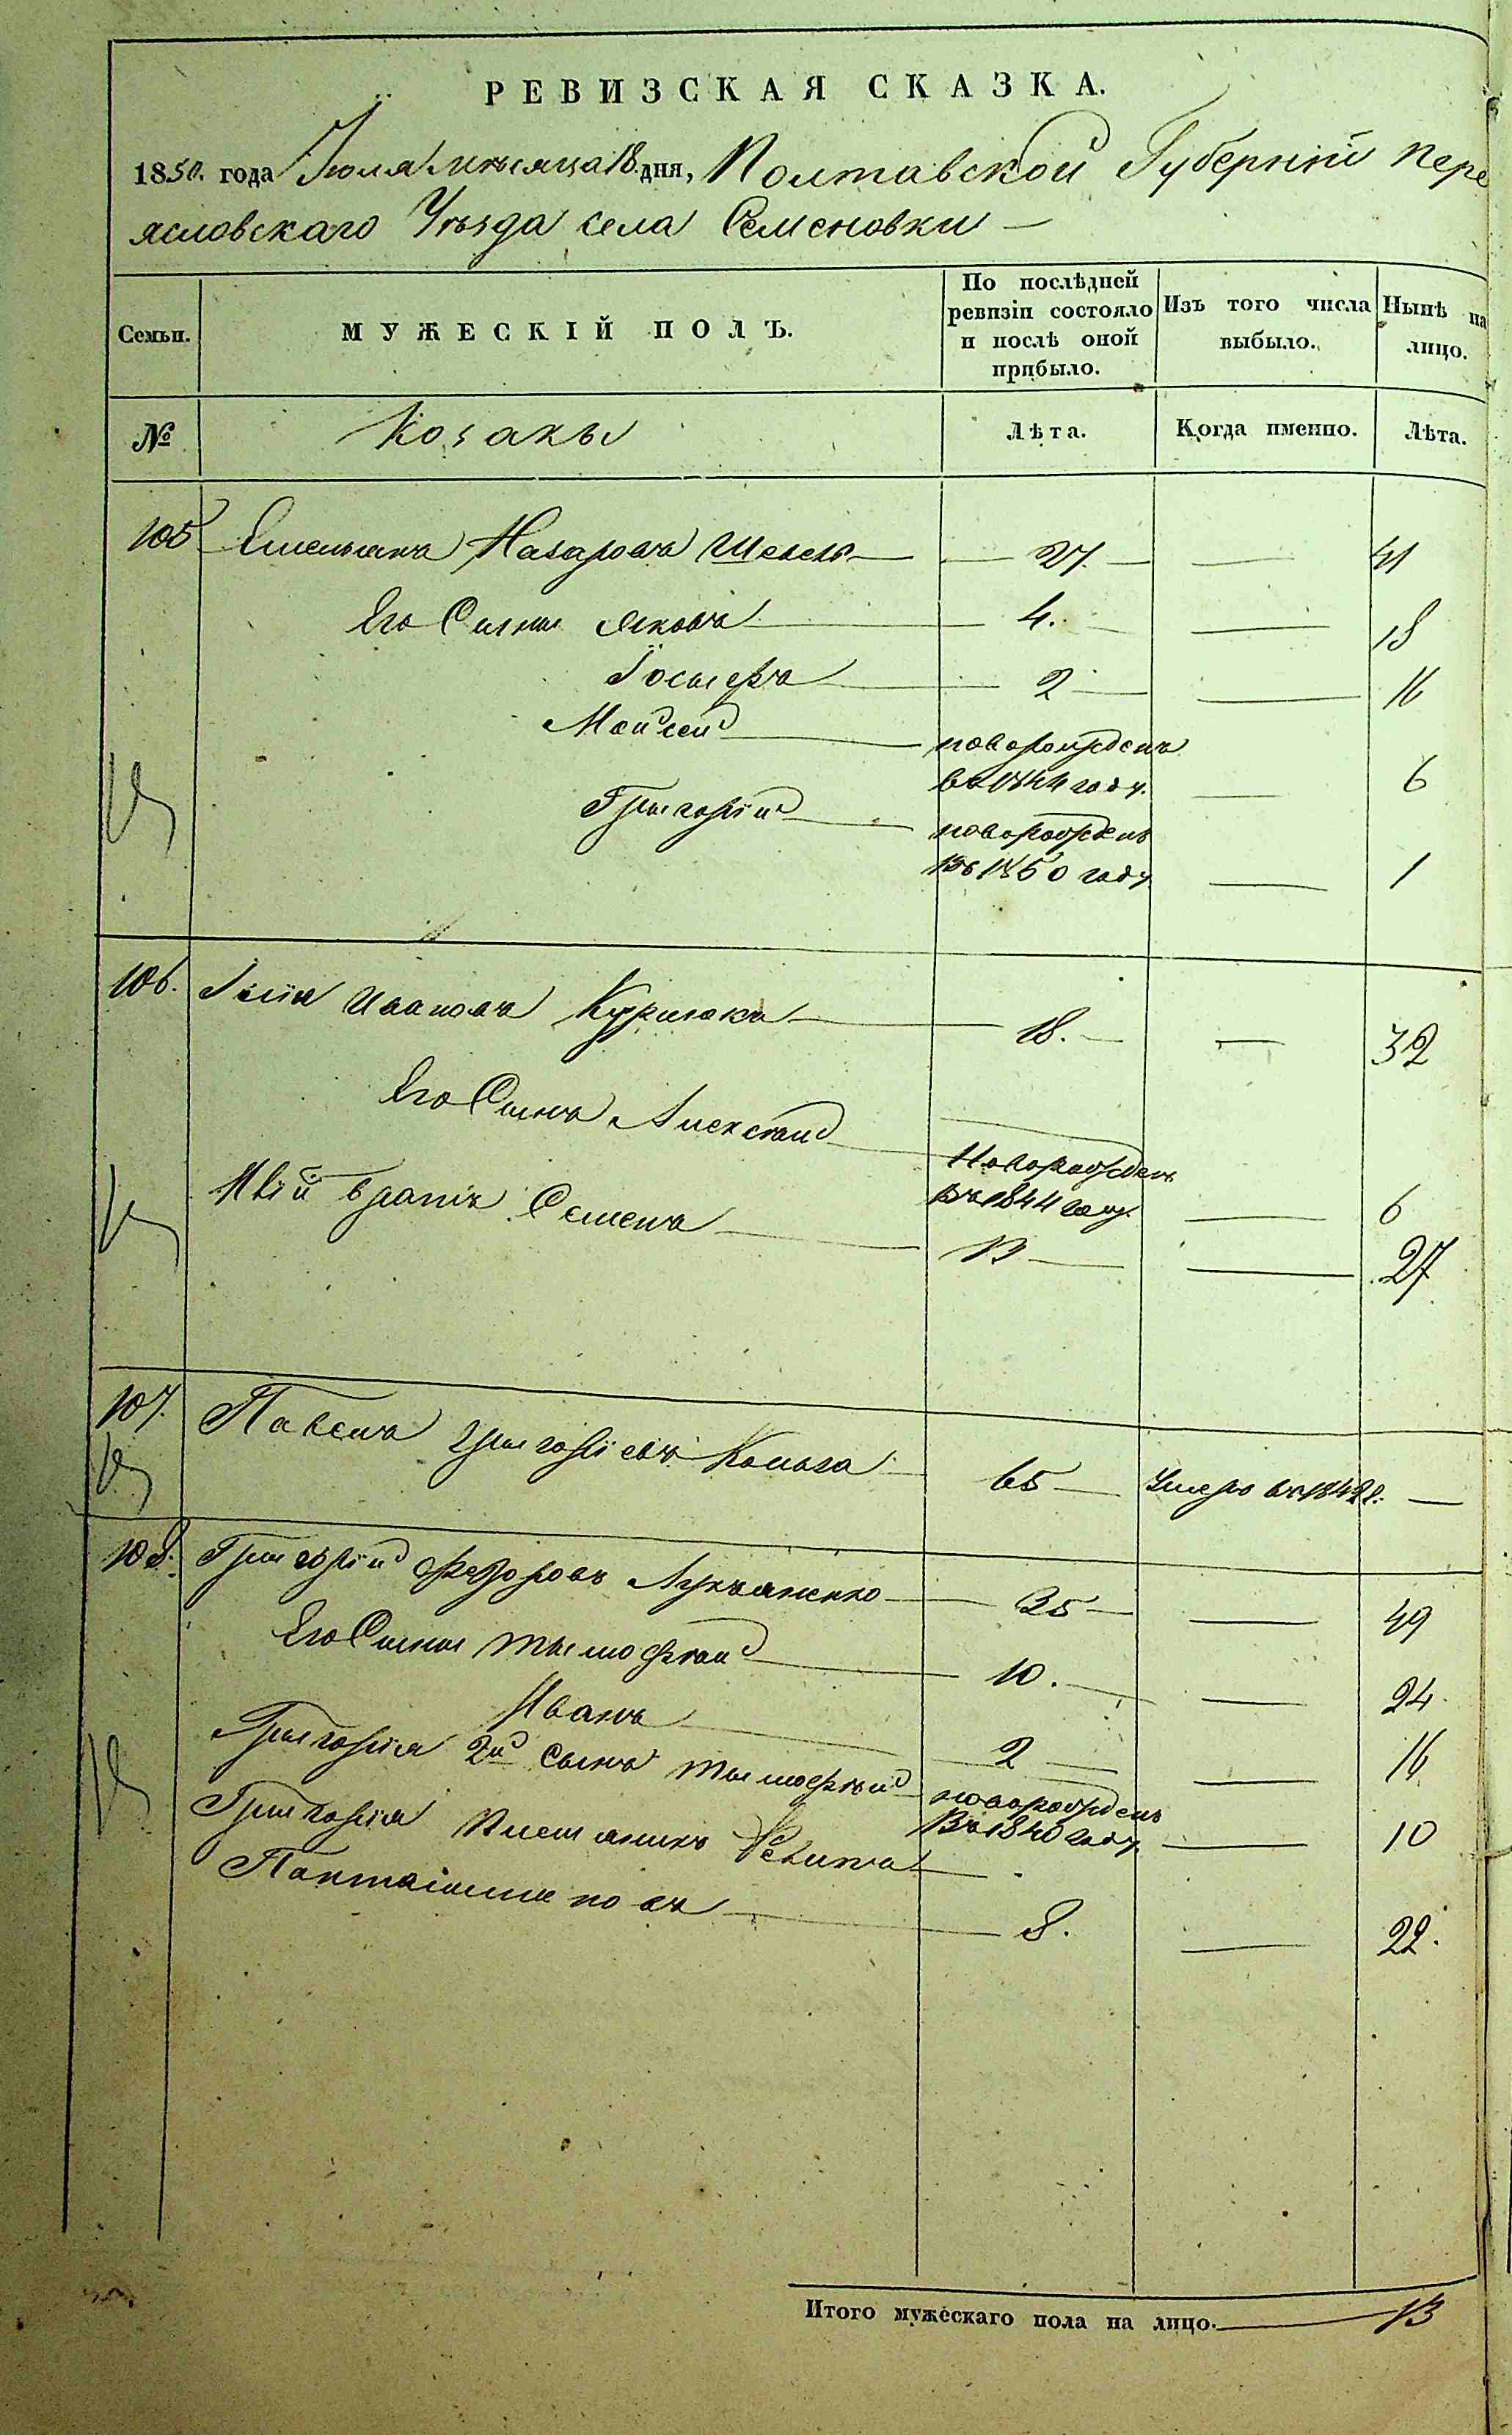 РЕВИЗСКАЯ СКАЗКА.
1850. года Іюля мѣсяца 18 дня, Полтавской Губерніи Пере
ясловскаго Уѣзда села Семеновки —
Семьи.
МУЖЕСКІЙ ПОЛЪ.
По послѣдней ревизіи состояло и послѣ оной прибыло.
Изъ того числа выбыло.
Нынѣ на лицо.
№
Козаки
Лѣта.
Когда именно.
Лѣта.
105 Емельянъ Назаровъ — 27. — — 41
Его Сыны Яковъ — 4. — — 18
Іосифъ — 2 — — 16
Мойсей — новорожденъ
въ 1844 году. — 6
Григорій — новорожденъ
въ 1850 году — 1
106. Илія Ивановъ — 18. — — 32
Его Сынъ Алексѣй — Новорожденъ
въ 1844 году. — 6
Илiи братъ Семенъ — 13 — — 27
107. Павелъ Григоріевъ — 65 — Умеръ въ 1842 г. —
108. Григорій Федоровъ Лукьяненко — 35 — — 49
Его Сыны Тымофѣй — 10. — — 24
Иванъ — 2 — — 16
Григорія 2й сынъ Тымофѣй новорожденъ
въ 1840 году — 10
Григорія Племянникъ
Пантелимоновъ — 8. — 22.
Итого мужескаго пола на лицо. — 13